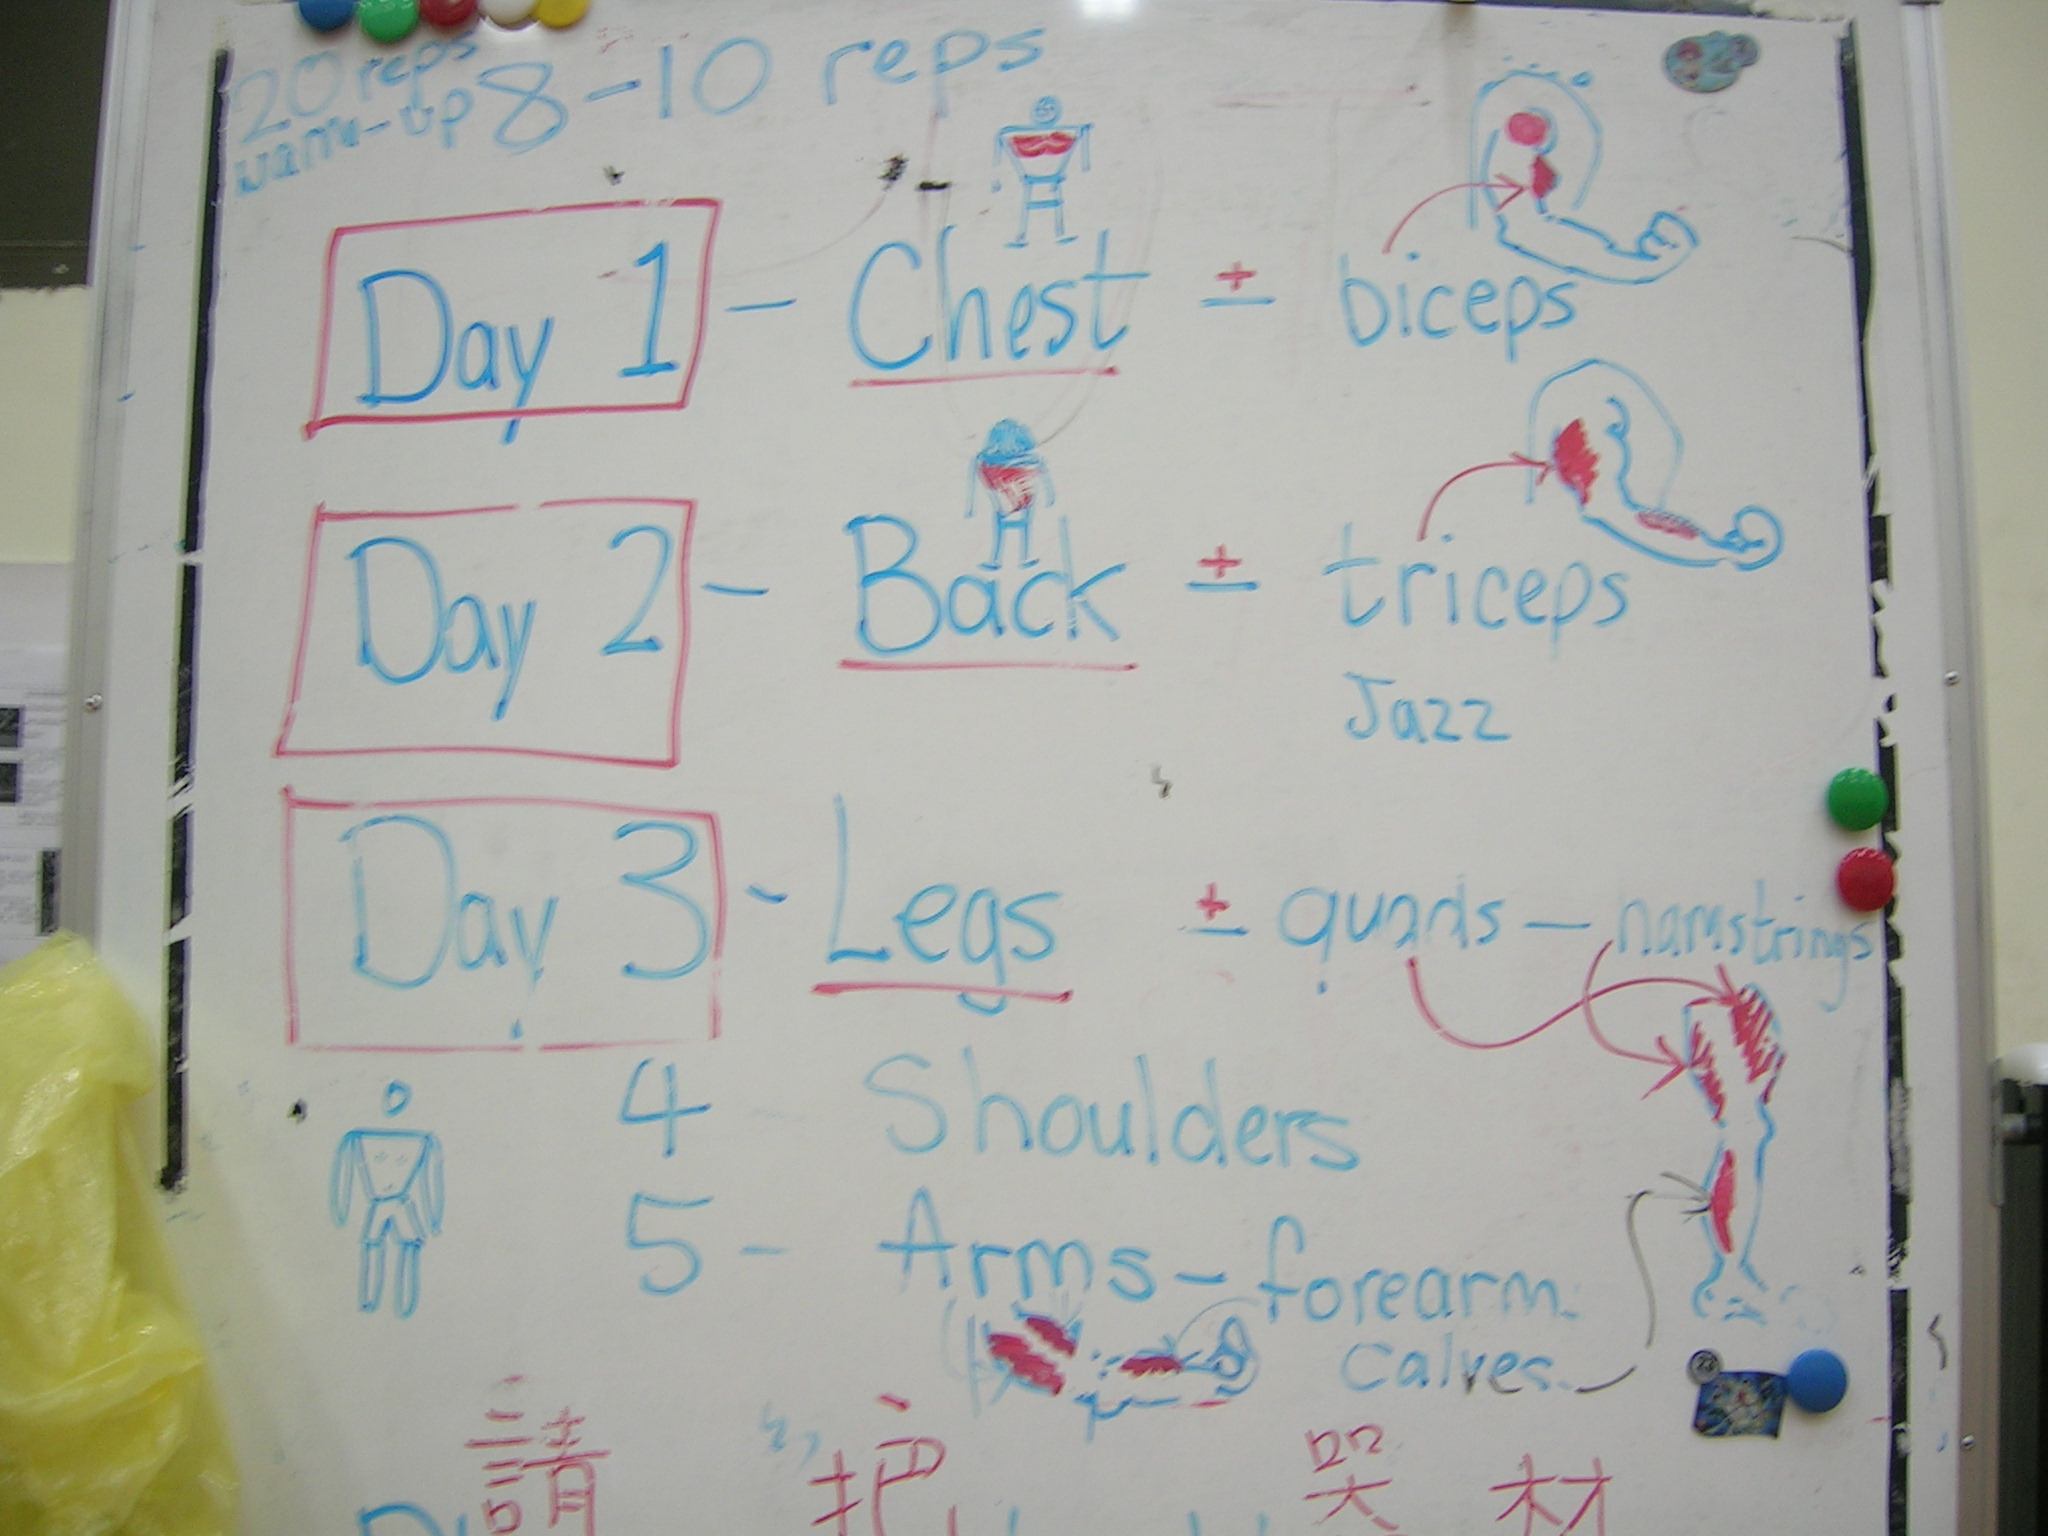 20 reps
warm-up 8-10 reps
Day 1 - Chest ± biceps
Day 2 - Back ± triceps
Jazz
Day 3 - Legs ± quads - hamstrings
4 - Shoulders
5 - Arms - forearm
Calves
請 把 器 材